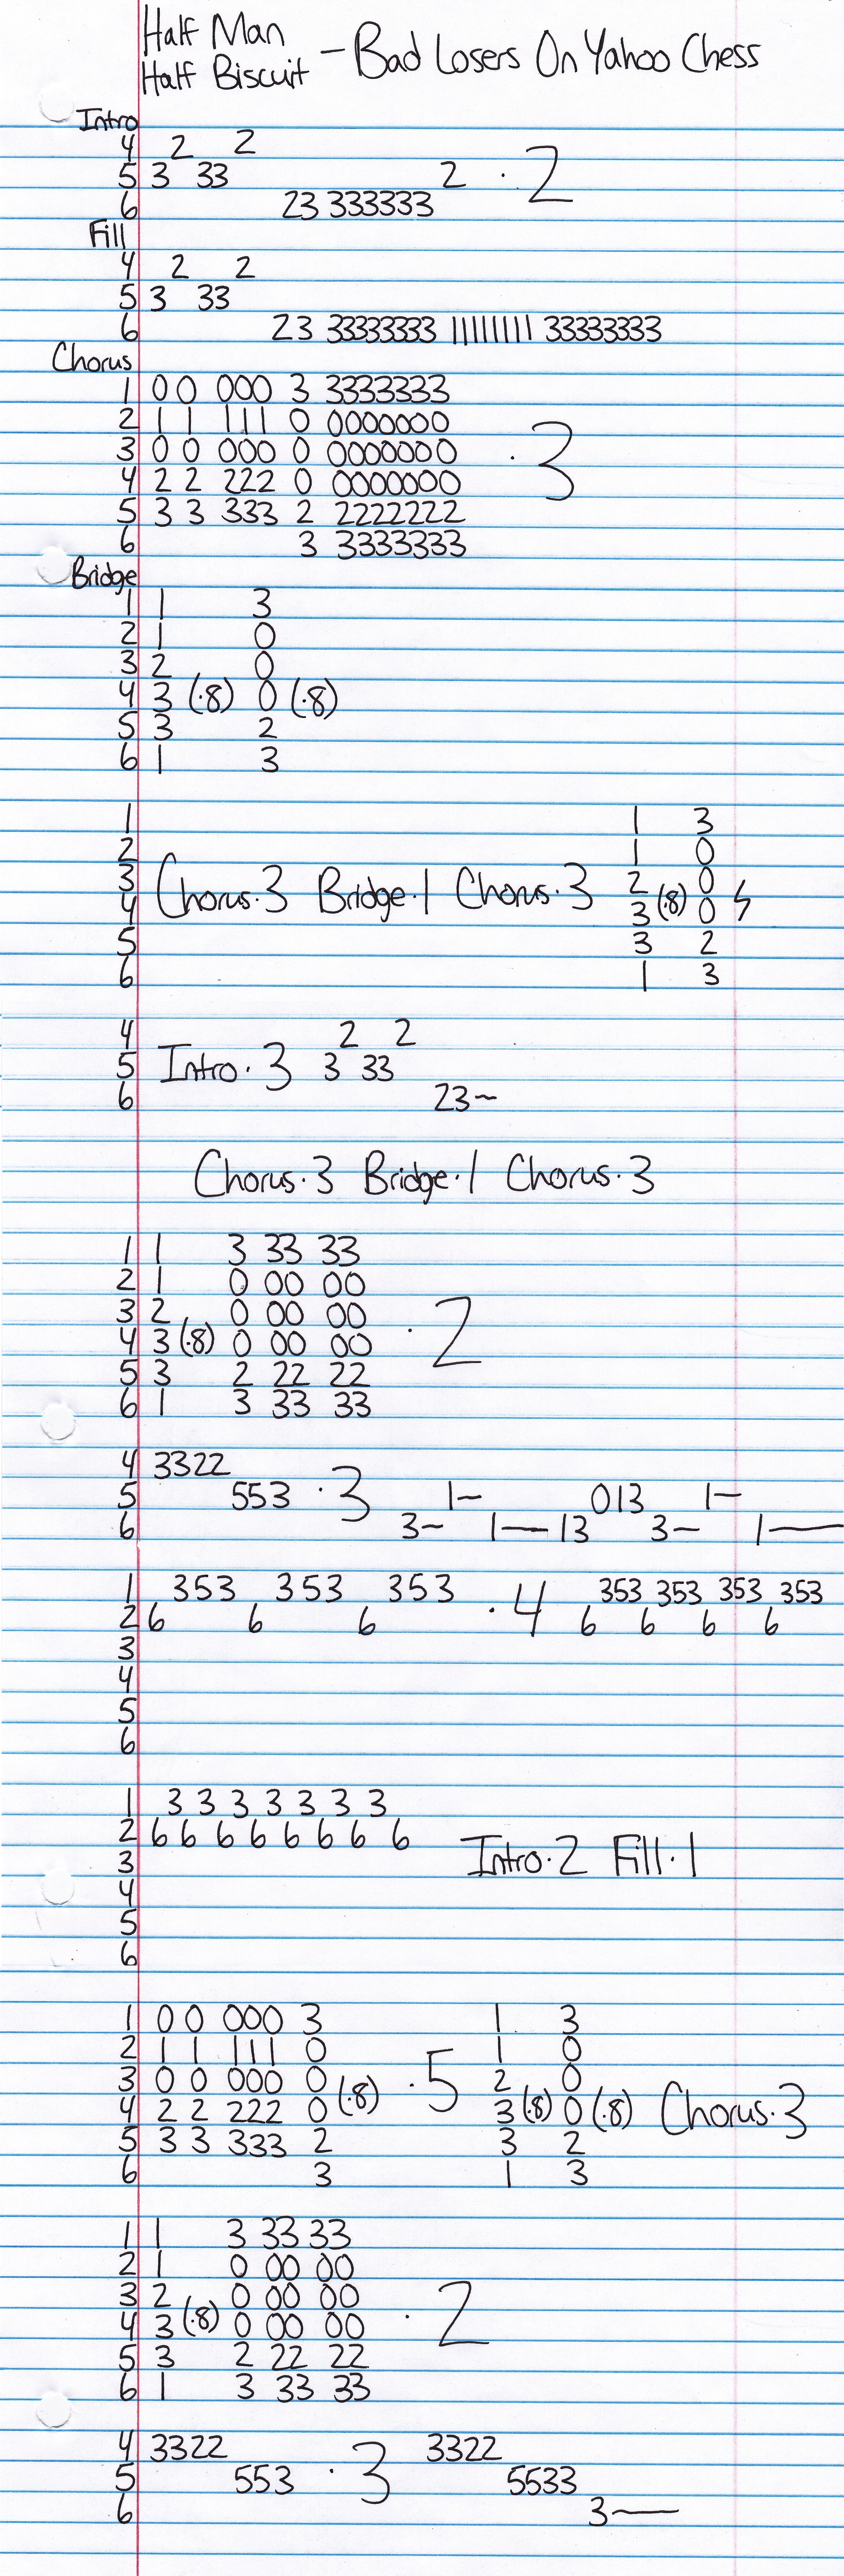 Half Man
Half Biscuit - Bad Losers On Yahoo Chess
Intro
4 2 2
5 3 33 2 · 2
6 23 333333
Fill
4 2 2
5 3 33
6 23 33333333 111111111 33333333
Chorus
1 0 0 000 3 3333333
2 1 1 111 0 0000000
3 0 0 000 0 0000000 · 3
4 2 2 222 0 0000000
5 3 3 333 2 2222222
6 3 3333333
Bridge
1 1 3
2 1 0
3 2 0
4 3 (·8) 0 (·8)
5 3 2
6 1 3
1 1 3
2 1 0
3 Chorus·3 Bridge·1 Chorus·3 2 0
4 3 (·8) 0 ϟ
5 3 2
6 1 3
4 2 2
5 Intro·3 3 33
6 23~
Chorus·3 Bridge·1 Chorus·3
1 1 3 33 33
2 1 0 00 00
3 2 0 00 00 · 2
4 3 (·8) 0 00 00
5 3 2 22 22
6 1 3 33 33
4 3322
5 553 · 3 1~ 013 1~
6 3~ 1— 13 3~ 1—
1 353 353 353 · 4 353 353 353 353
2 6 6 6 6 6 6 6
3
4
5
6
1 3 3 3 3 3 3 3
2 6 6 6 6 6 6 6 6
3 Intro·2 Fill·1
4
5
6
1 0 0 000 3 1 3
2 1 1 111 0 1 0
3 0 0 000 0 (·8) · 5 2 0
4 2 2 222 0 3 (·8) 0 (·8) Chorus·3
5 3 3 333 2 3 2
6 3 1 3
1 1 3 33 33
2 1 0 00 00
3 2 0 00 00 · 2
4 3 (·8) 0 00 00
5 3 2 22 22
6 1 3 33 33
4 3322 3322
5 553 · 3 5533
6 3—